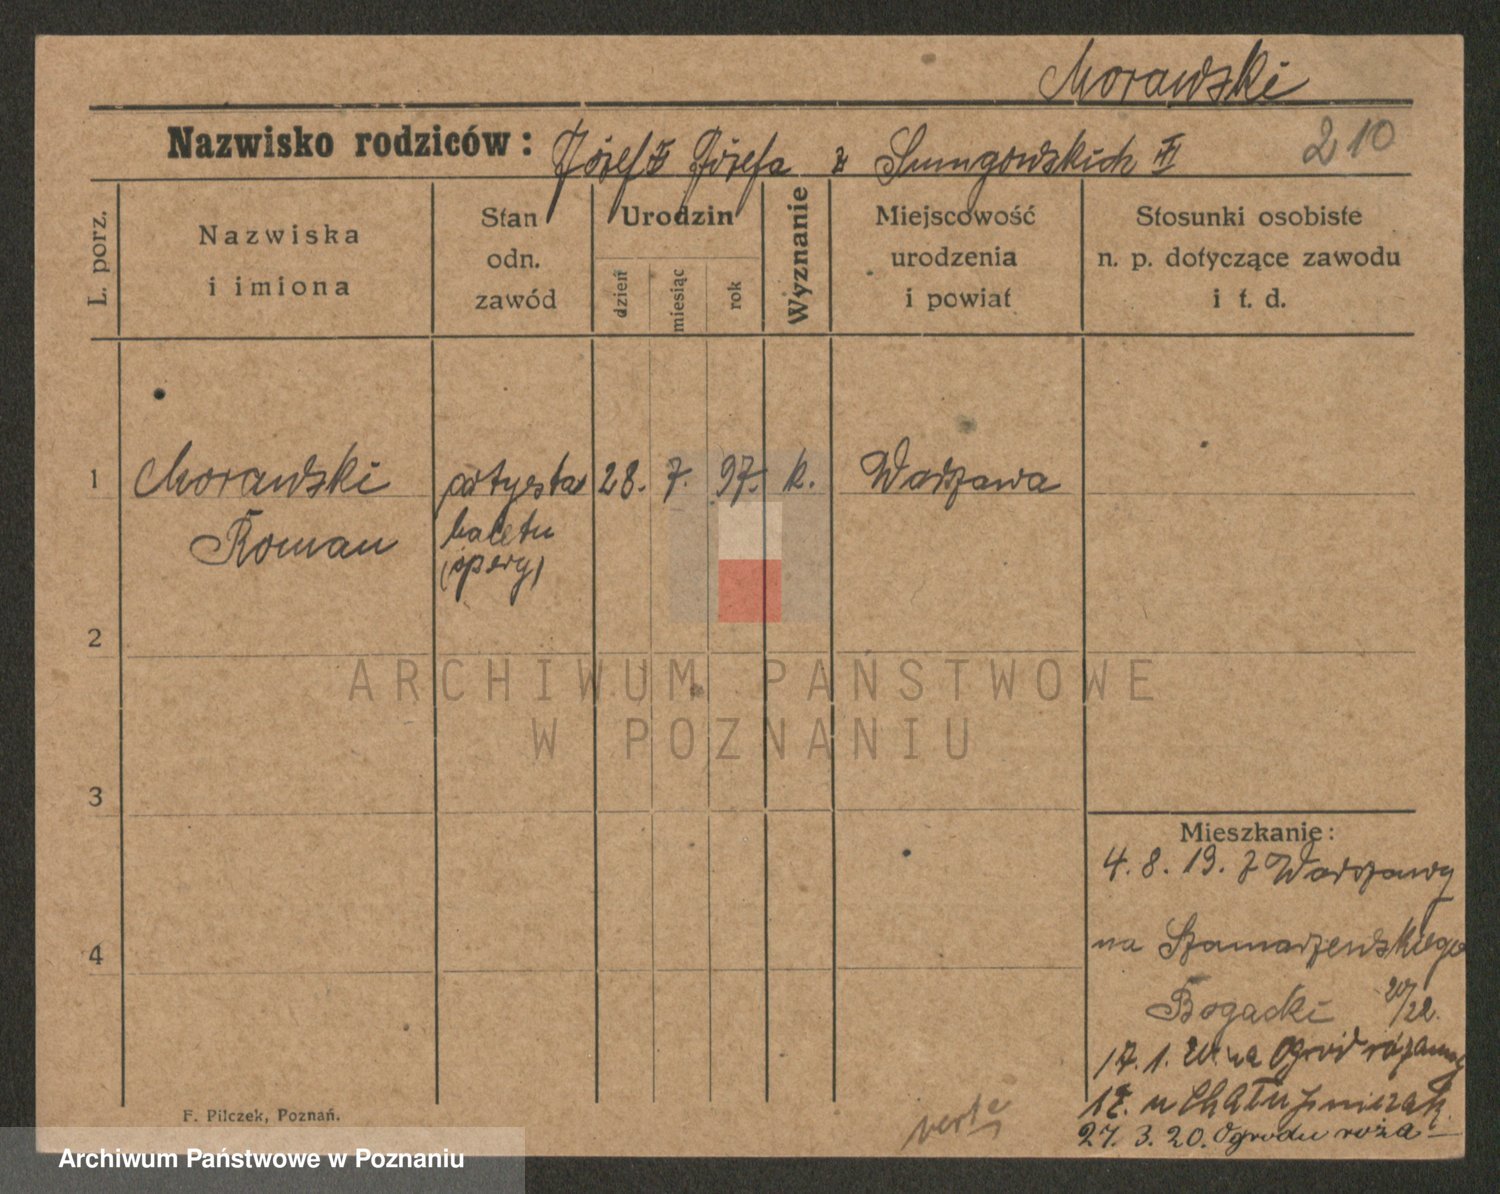 Morawski
Nazwisko rodziców: Józef i Józefa z
210
L. porz.
Nazwiska
i imiona
Stan
odn.
zawód
Urodzin
dzień
miesiąc
rok
Wyznanie
Miejscowość
urodzenia
i powiat
Stosunki osobiste
n. p. dotyczące zawodu
i t. d.
1 Morawski artysta 28. 7. 97. k. Warszawa
Roman baletu
(opery)
2
3
4
ARCHIWUM PAŃSTWOWE
W POZNANIU
Mieszkanie:
4. 8. 19. z Warszawy
na Szamarzewskiego
Bogacki 20/22.
17. 1. 20. na Ogród różanny
17. u
27. 3. 20. Ogrodu roża—
verte
F. Pilczek, Poznań.
Archiwum Państwowe w Poznaniu